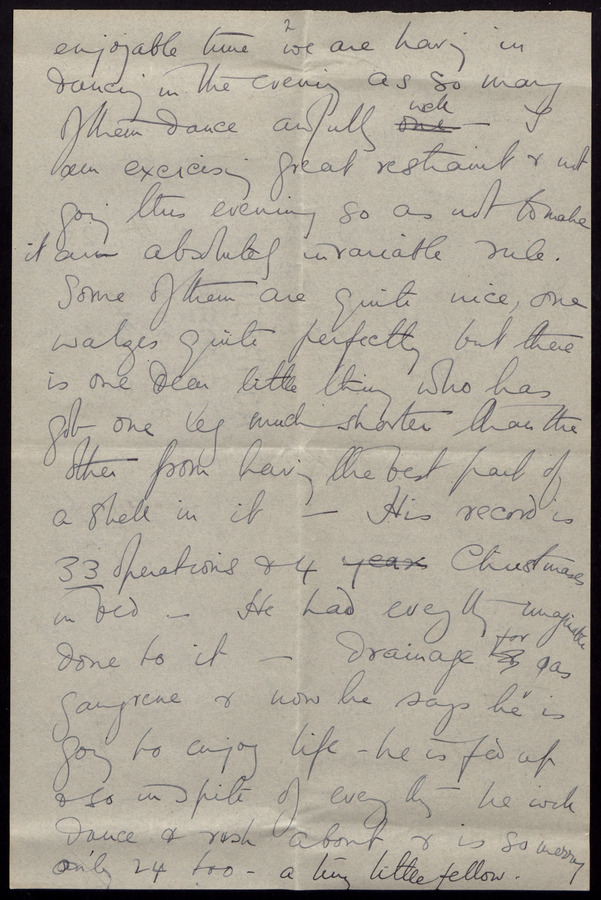 2
enjoyable time we are having in
dancing in the evening as so many
of them dance awfully ~~one~~ well — I
am excercising great restraint & not
going this evening so as not to make
it an absolutely invariable rule.
Some of them are quite nice, one
walzes quite perfectly but there
is one dear little thing who has
got one leg much shorter than the
other from having the best part of
a shell in it — His record is
33 operations & 4 ~~years~~ Christmases
in bed — He had everything imaginable
done to it — Drainage for gas
gangrene & now he says he is
going to enjoy life - he is fed up
& so in spite of everything he will
dance & rush about & is so merry
only 24 too - a tiny little fellow.